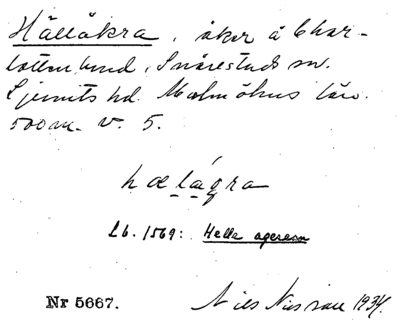 Hällåkra, åker å Char-
lottenlund, Snårestads sn.
Ljunits hd. Malmöhus län.
500 m. V. 5.
hælágra
Lb. 1569: Helle ageren
Nr 5667.
Nils Nilsson 1934.